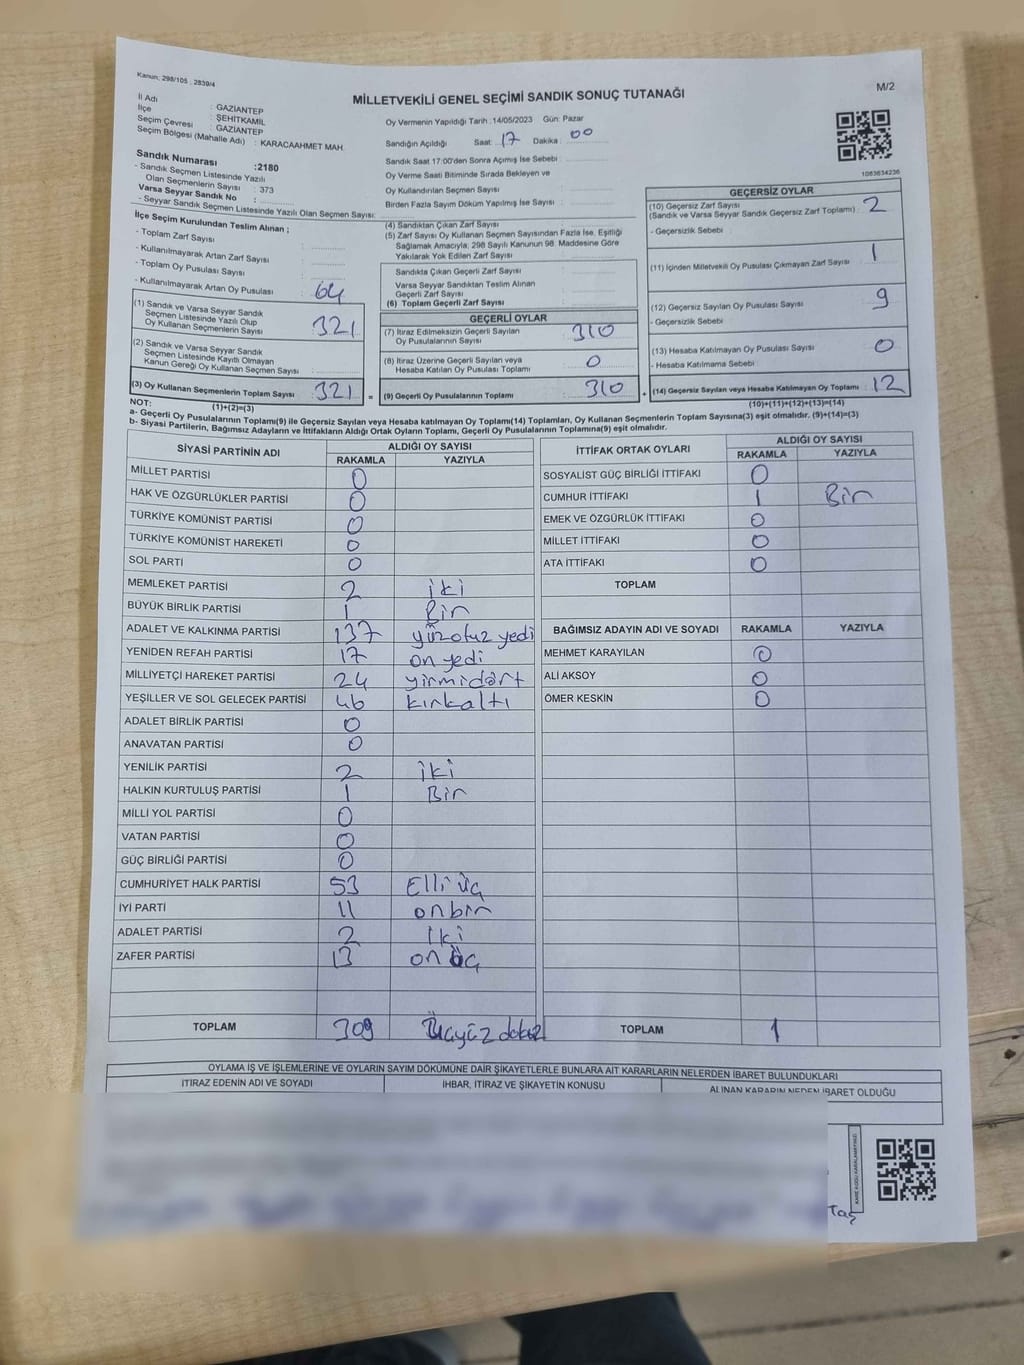 Kanun: 298/105 , 2839/4
M/2
MİLLETVEKİLİ GENEL SEÇİMİ SANDIK SONUÇ TUTANAĞI
İl Adı : GAZİANTEP
İlçe : ŞEHİTKAMİL
Seçim Çevresi : GAZİANTEP
Seçim Bölgesi (Mahalle Adı) : KARACAAHMET MAH.
Sandık Numarası :2180
- Sandık Seçmen Listesinde Yazılı
Olan Seçmenlerin Sayısı : 373
Varsa Seyyar Sandık No :
- Seyyar Sandık Seçmen Listesinde Yazılı Olan Seçmen Sayısı:
Oy Vermenin Yapıldığı Tarih :14/05/2023 Gün: Pazar
Sandığın Açıldığı Saat: 17 Dakika : 00
Sandık Saat 17:00'den Sonra Açımış İse Sebebi :
Oy Verme Saati Bitiminde Sırada Bekleyen ve
Oy Kullandırılan Seçmen Sayısı :
Birden Fazla Sayım Döküm Yapılmış İse Sayısı :
1083634236
İlçe Seçim Kurulundan Teslim Alınan ;
- Toplam Zarf Sayısı :
- Kullanılmayarak Artan Zarf Sayısı :
- Toplam Oy Pusulası Sayısı :
- Kullanılmayarak Artan Oy Pusulası : 64
(1) Sandık ve Varsa Seyyar Sandık
Seçmen Listesinde Yazılı Olup
Oy Kullanan Seçmenlerin Sayısı : 321
(2) Sandık ve Varsa Seyyar Sandık
Seçmen Listesinde Kayıtlı Olmayan
Kanun Gereği Oy Kullanan Seçmen Sayısı :
(3) Oy Kullanan Seçmenlerin Toplam Sayısı : 321
(1)+(2)=(3)
(4) Sandıktan Çıkan Zarf Sayısı :
(5) Zarf Sayısı Oy Kullanan Seçmen Sayısından Fazla İse, Eşitliği
Sağlamak Amacıyla; 298 Sayılı Kanunun 98. Maddesine Göre
Yakılarak Yok Edilen Zarf Sayısı :
Sandıkta Çıkan Geçerli Zarf Sayısı :
Varsa Seyyar Sandıktan Teslim Alınan
Geçerli Zarf Sayısı :
(6) Toplam Geçerli Zarf Sayısı :
GEÇERLİ OYLAR
(7) İtiraz Edilmeksizin Geçerli Sayılan
Oy Pusulalarının Sayısı : 310
(8) İtiraz Üzerine Geçerli Sayılan veya
Hesaba Katılan Oy Pusulası Toplamı : 0
= (9) Geçerli Oy Pusulalarının Toplamı : 310 +
GEÇERSİZ OYLAR
(10) Geçersiz Zarf Sayısı
(Sandık ve Varsa Seyyar Sandık Geçersiz Zarf Toplamı) : 2
- Geçersizlik Sebebi :
(11) İçinden Milletvekili Oy Pusulası Çıkmayan Zarf Sayısı : 1
(12) Geçersiz Sayılan Oy Pusulası Sayısı : 9
- Geçersizlik Sebebi :
(13) Hesaba Katılmayan Oy Pusulası Sayısı : 0
- Hesaba Katılmama Sebebi :
(14) Geçersiz Sayılan veya Hesaba Katılmayan Oy Toplamı : 12
(10)+(11)+(12)+(13)=(14)
NOT:
a- Geçerli Oy Pusulalarının Toplamı(9) ile Geçersiz Sayılan veya Hesaba katılmayan Oy Toplamı(14) Toplamları, Oy Kullanan Seçmenlerin Toplam Sayısına(3) eşit olmalıdır. (9)+(14)=(3)
b- Siyasi Partilerin, Bağımsız Adayların ve İttifakların Aldığı Ortak Oyların Toplamı, Geçerli Oy Pusulalarının Toplamına(9) eşit olmalıdır.
SİYASİ PARTİNİN ADI ALDIĞI OY SAYISI
RAKAMLA YAZIYLA
MİLLET PARTİSİ 0
HAK VE ÖZGÜRLÜKLER PARTİSİ 0
TÜRKİYE KOMÜNİST PARTİSİ 0
TÜRKİYE KOMÜNİST HAREKETİ 0
SOL PARTİ 0
MEMLEKET PARTİSİ 2 iki
BÜYÜK BİRLİK PARTİSİ 1 Bir
ADALET VE KALKINMA PARTİSİ 137 yüzotuz yedi
YENİDEN REFAH PARTİSİ 17 on yedi
MİLLİYETÇİ HAREKET PARTİSİ 24 yirmidört
YEŞİLLER VE SOL GELECEK PARTİSİ 46 kırkaltı
ADALET BİRLİK PARTİSİ 0
ANAVATAN PARTİSİ 0
YENİLİK PARTİSİ 2 iki
HALKIN KURTULUŞ PARTİSİ 1 Bir
MİLLİ YOL PARTİSİ 0
VATAN PARTİSİ 0
GÜÇ BİRLİĞİ PARTİSİ 0
CUMHURİYET HALK PARTİSİ 53 Elli üç
İYİ PARTİ 11 onbir
ADALET PARTİSİ 2 İki
ZAFER PARTİSİ 13 on üç
TOPLAM 309 Üçyüz dokuz
İTTİFAK ORTAK OYLARI ALDIĞI OY SAYISI
RAKAMLA YAZIYLA
SOSYALİST GÜÇ BİRLİĞİ İTTİFAKI 0
CUMHUR İTTİFAKI 1 Bir
EMEK VE ÖZGÜRLÜK İTTİFAKI 0
MİLLET İTTİFAKI 0
ATA İTTİFAKI 0
TOPLAM
BAĞIMSIZ ADAYIN ADI VE SOYADI RAKAMLA YAZIYLA
MEHMET KARAYILAN 0
ALİ AKSOY 0
ÖMER KESKİN 0
TOPLAM 1
OYLAMA İŞ VE İŞLEMLERİNE VE OYLARIN SAYIM DÖKÜMÜNE DAİR ŞİKAYETLERLE BUNLARA AİT KARARLARIN NELERDEN İBARET BULUNDUKLARI
İTİRAZ EDENİN ADI VE SOYADI İHBAR, İTİRAZ VE ŞİKAYETİN KONUSU ALINAN KARARIN NEDEN İBARET OLDUĞU
KARE KODU KARALAMAYINIZ!
taş